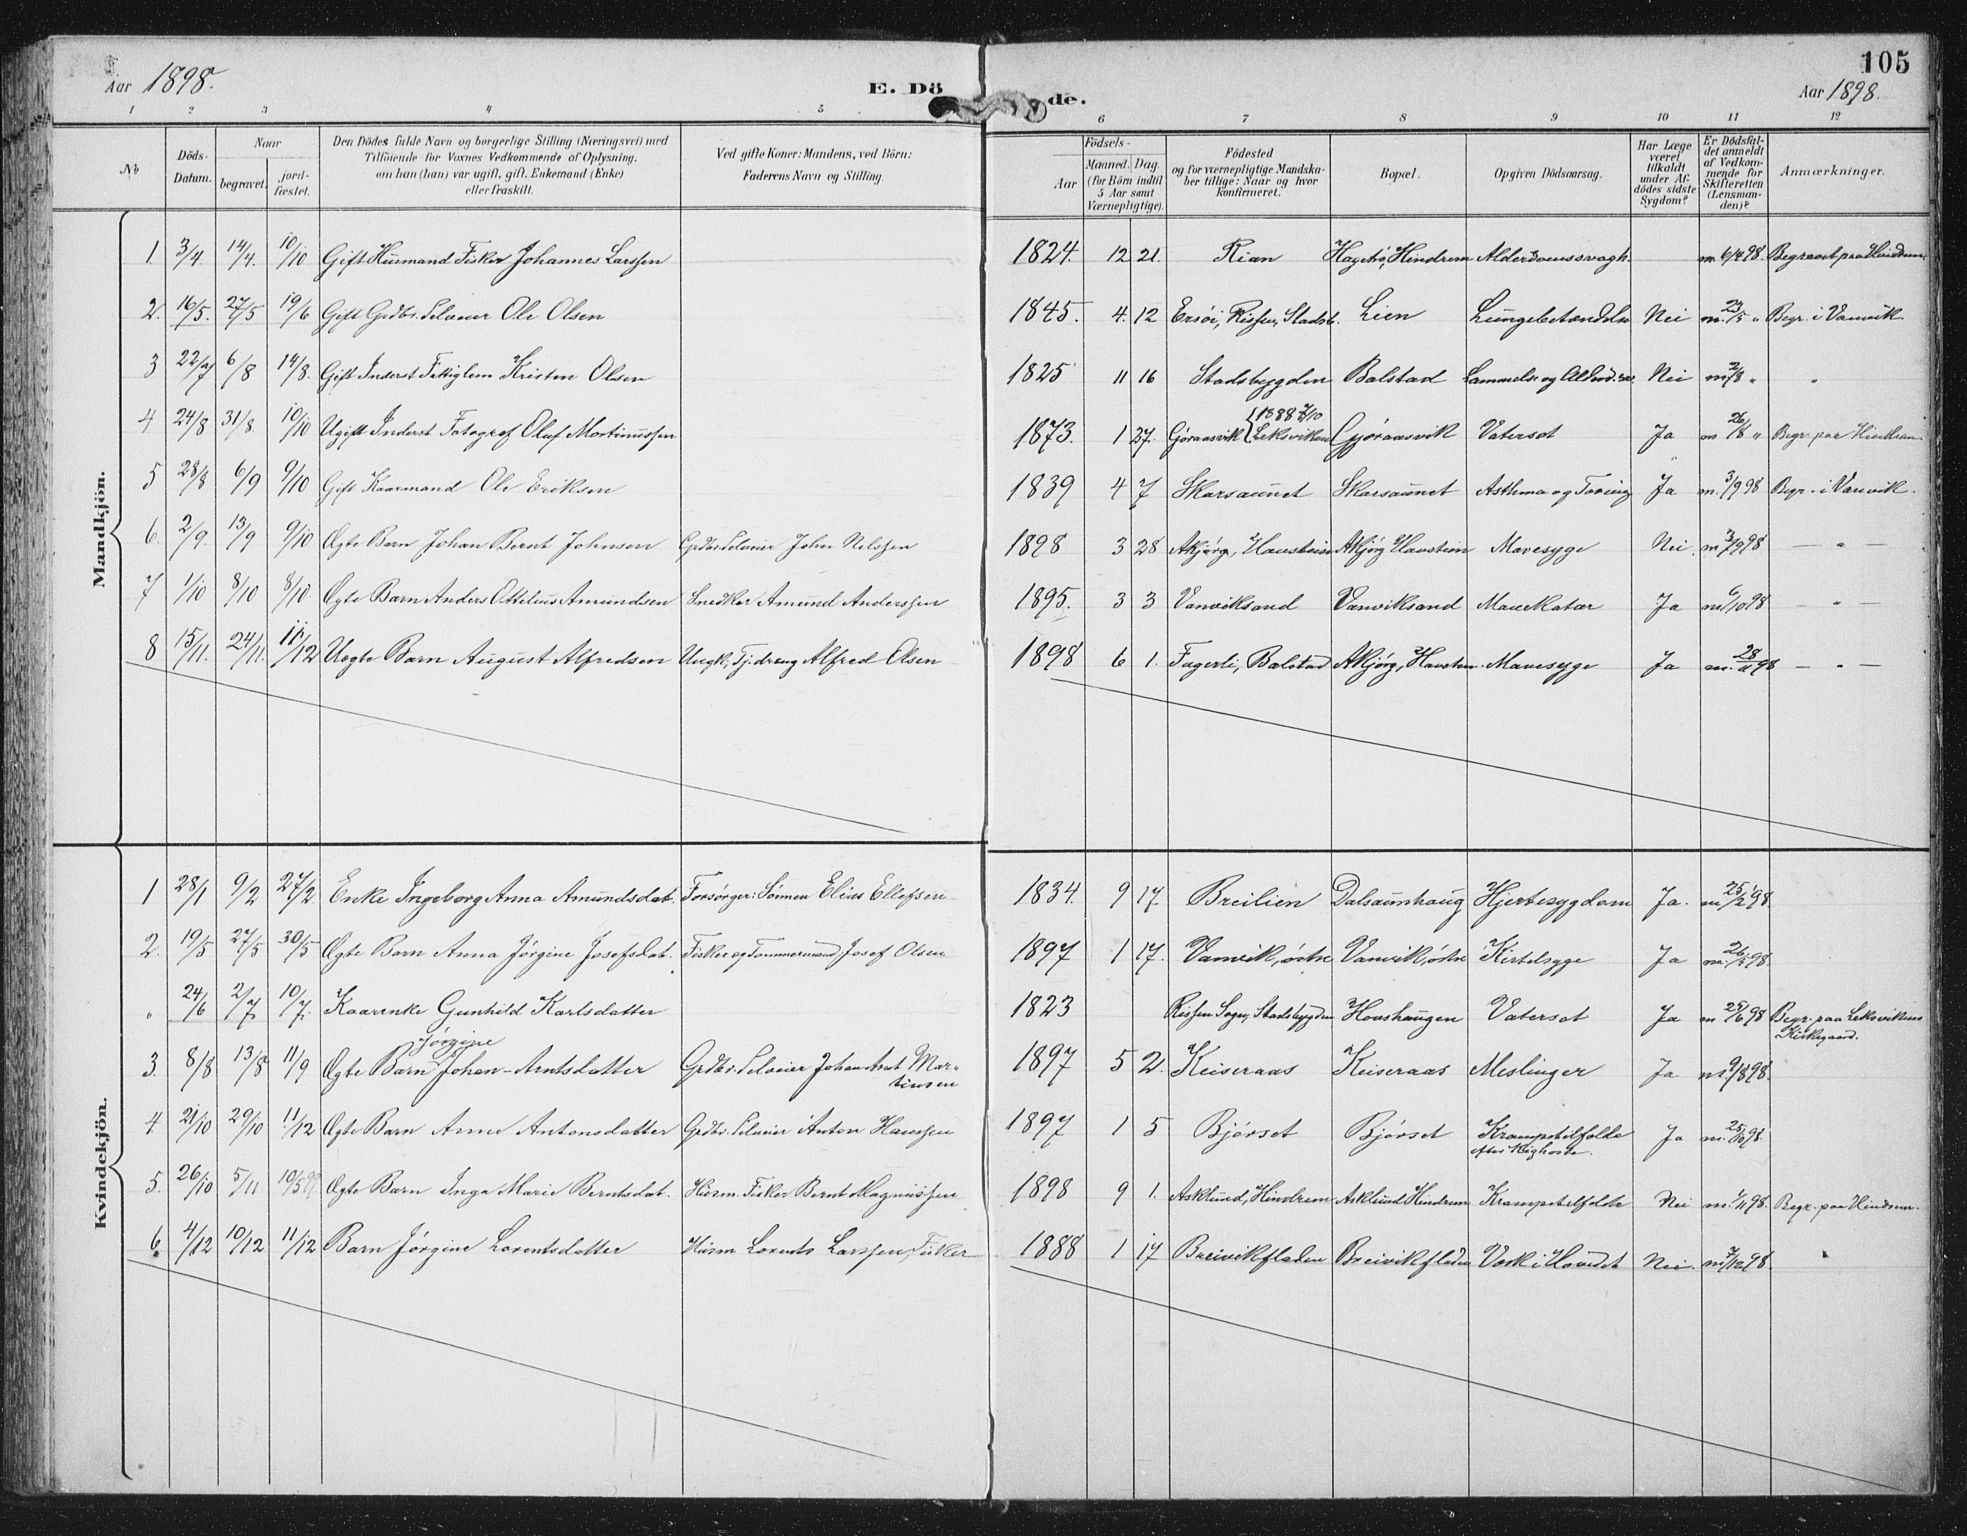 105
Aar 1898.
E. Döde.
Aar 1898.
1 2 3 4 5 6 7 8 9 10 11 12
No
Döds-Datum.
Naar
begravet.
jord-fæstet.
Den Dödes fulde Navn og borgerlige Stilling (Næringsvei) med
Tilföiende for Voxnes Vedkommende af Oplysning,
om han (hun) var ugift, gift, Enkemand (Enke)
eller fraskilt.
Ved gifte Koner: Mandens, ved Börn:
Faderens Navn og Stilling.
Födsels-
Aar
Maaned. Dag.
(for Börn indtil
5 Aar samt
Værnepligtige).
Födested
og for værnepligtige Mandska-
ber tillige: Naar og hvor
konfirmeret.
Bopæl.
Opgiven Dödsaarsag.
Har Læge
været
tilkaldt
under Af-
dödes sidste
Sygdom?
Er Dödsfal-
det anmeldt
af Vedkom-
mende for
Skifteretten
(Lensman-
den)?
Anmærkninger.
Mandkjön.
1. 3/4. 14/4. 10/10 Gift Husmand Fisker Johannes Larssen 1824 12 21 Rian Hindrem m. 6/4 98. Begravet paa Hindrem
2. 16/5. 27/5 19/6 Gift Grdbr. Selveier Ole Olsen 1845. 4. 12 Rissen, Stadsb. Lien Lungebetændelse Nei m. 23/5 " Begr. i Vanvik
3 22/7 6/8 14/8. Gift Inderst Fattiglem Kristen Olsen 1825 11 16 Stadsbygden Balstad Nei m 2/8 " "
4 24/8 31/8. 10/10 Ugift Inderst Fotograf Oluf Martinussen 1873. 1 27. Gjøraasvik {1888 2/10 Leksviken Gjøraasvik Vatersot Ja m 26/8 " Begr. paa Hindrem
5 28/8 6/9 9/10 Gift Kaarmand Ole Eriksen 1839 4 7 Skarsaunet Skarsaunet Asthma og Tæring Ja m. 3/9 98 Begr. i Vanvik.
6. 2/9. 13/9 9/10 Ægte Barn Johan Bernt Johnsen Grdbr. Selveier John Nelssen 1898 3 28 Akjørg, Haustein Akjørg Haustein Mavesyge Nei. m 3/9 98 — " —
7 1/10 8/10 8/10. Ægte Barn Anders Ottilius Amundsen Snedker Amund Anderssen 1895. 3 3 Vanviksand Vanviksand Mavekatar Ja m 6/10 98 — " —
8 15/11. 24/11. 11/12 Uægte Barn August Alfredsen Ungk., Tj.dreng Alfred Olsen 1898 6 1. Fagerli, Balstad Akjørg, Haustein. Mavesyge Ja m. 28/11 98 — " —
Kvindekjön.
1 28/1 9/2 27/2 Enke Ingeborg Anna Amundsdat. Forsørger: Sønnen Elias Ellefsen 1834. 9 17. Breilien Dalsaunhaug Hjertesygdom Ja. m 25/2 98.
2. 19/5 27/5 30/5 Ægte Barn Anna Jørgine Josefsdat. Fisker og Tømmermand Josef Olsen 1897 1 17. Vanvik, østre Vanvik, østre Kirtelsyge Ja m. 26/5 98.
" 24/6 2/7 10/7. Kaarenke Gunhild Karlsdatter 1823 Rissen Sogn, Stadsbygden Houshaugen Vatersot Ja m 25/6 98 Begr. paa Leksvikens Kirkegaard.
3. 8/8 13/8 11/9 Ægte Barn Jørgine Johan-Arntsdatter Grdbr. Selveier Johan Arnt Mar-
tinsen 1897 5 2. Keiseraas Keiseraas Meslinger Ja m 9/8 98.
4. 21/10 29/10 11/12 Ægte Barn Anne Antonsdatter Grdbr. Selveier Anton Hanssen 1897 1 5 Bjørset Bjørset Krampetilfælde
efter Kighoste. Ja m. 25/10 98.
5. 26/10 5/11 10/5 99 Ægte Barn Inga Marie Berntsdat. Husm. Fisker Bernt Magnussen 1898 9 1. Asklund, Hindrem Asklund Hindrem Krampetilfælde Nei m. 1/11 98. Begr. paa Hindrem.
6. 4/12 10/12 11/12 Barn Jørgine Lorentsdatter Husm Lorents Larssen, Fisker 1888 1 17 Breivikfladen Breivikfladen Værk i Hovedet Nei. m 7/12 98. "